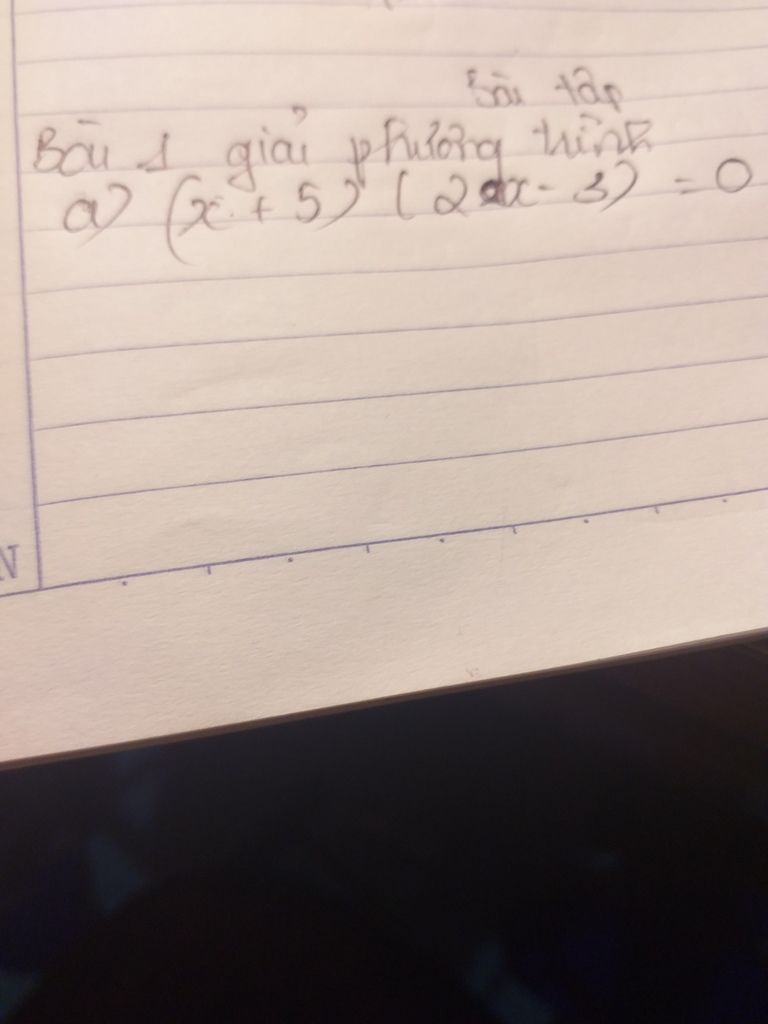 Bài tập
Bài 1 giải phương trình
a) (x + 5) (2x - 3) = 0
N